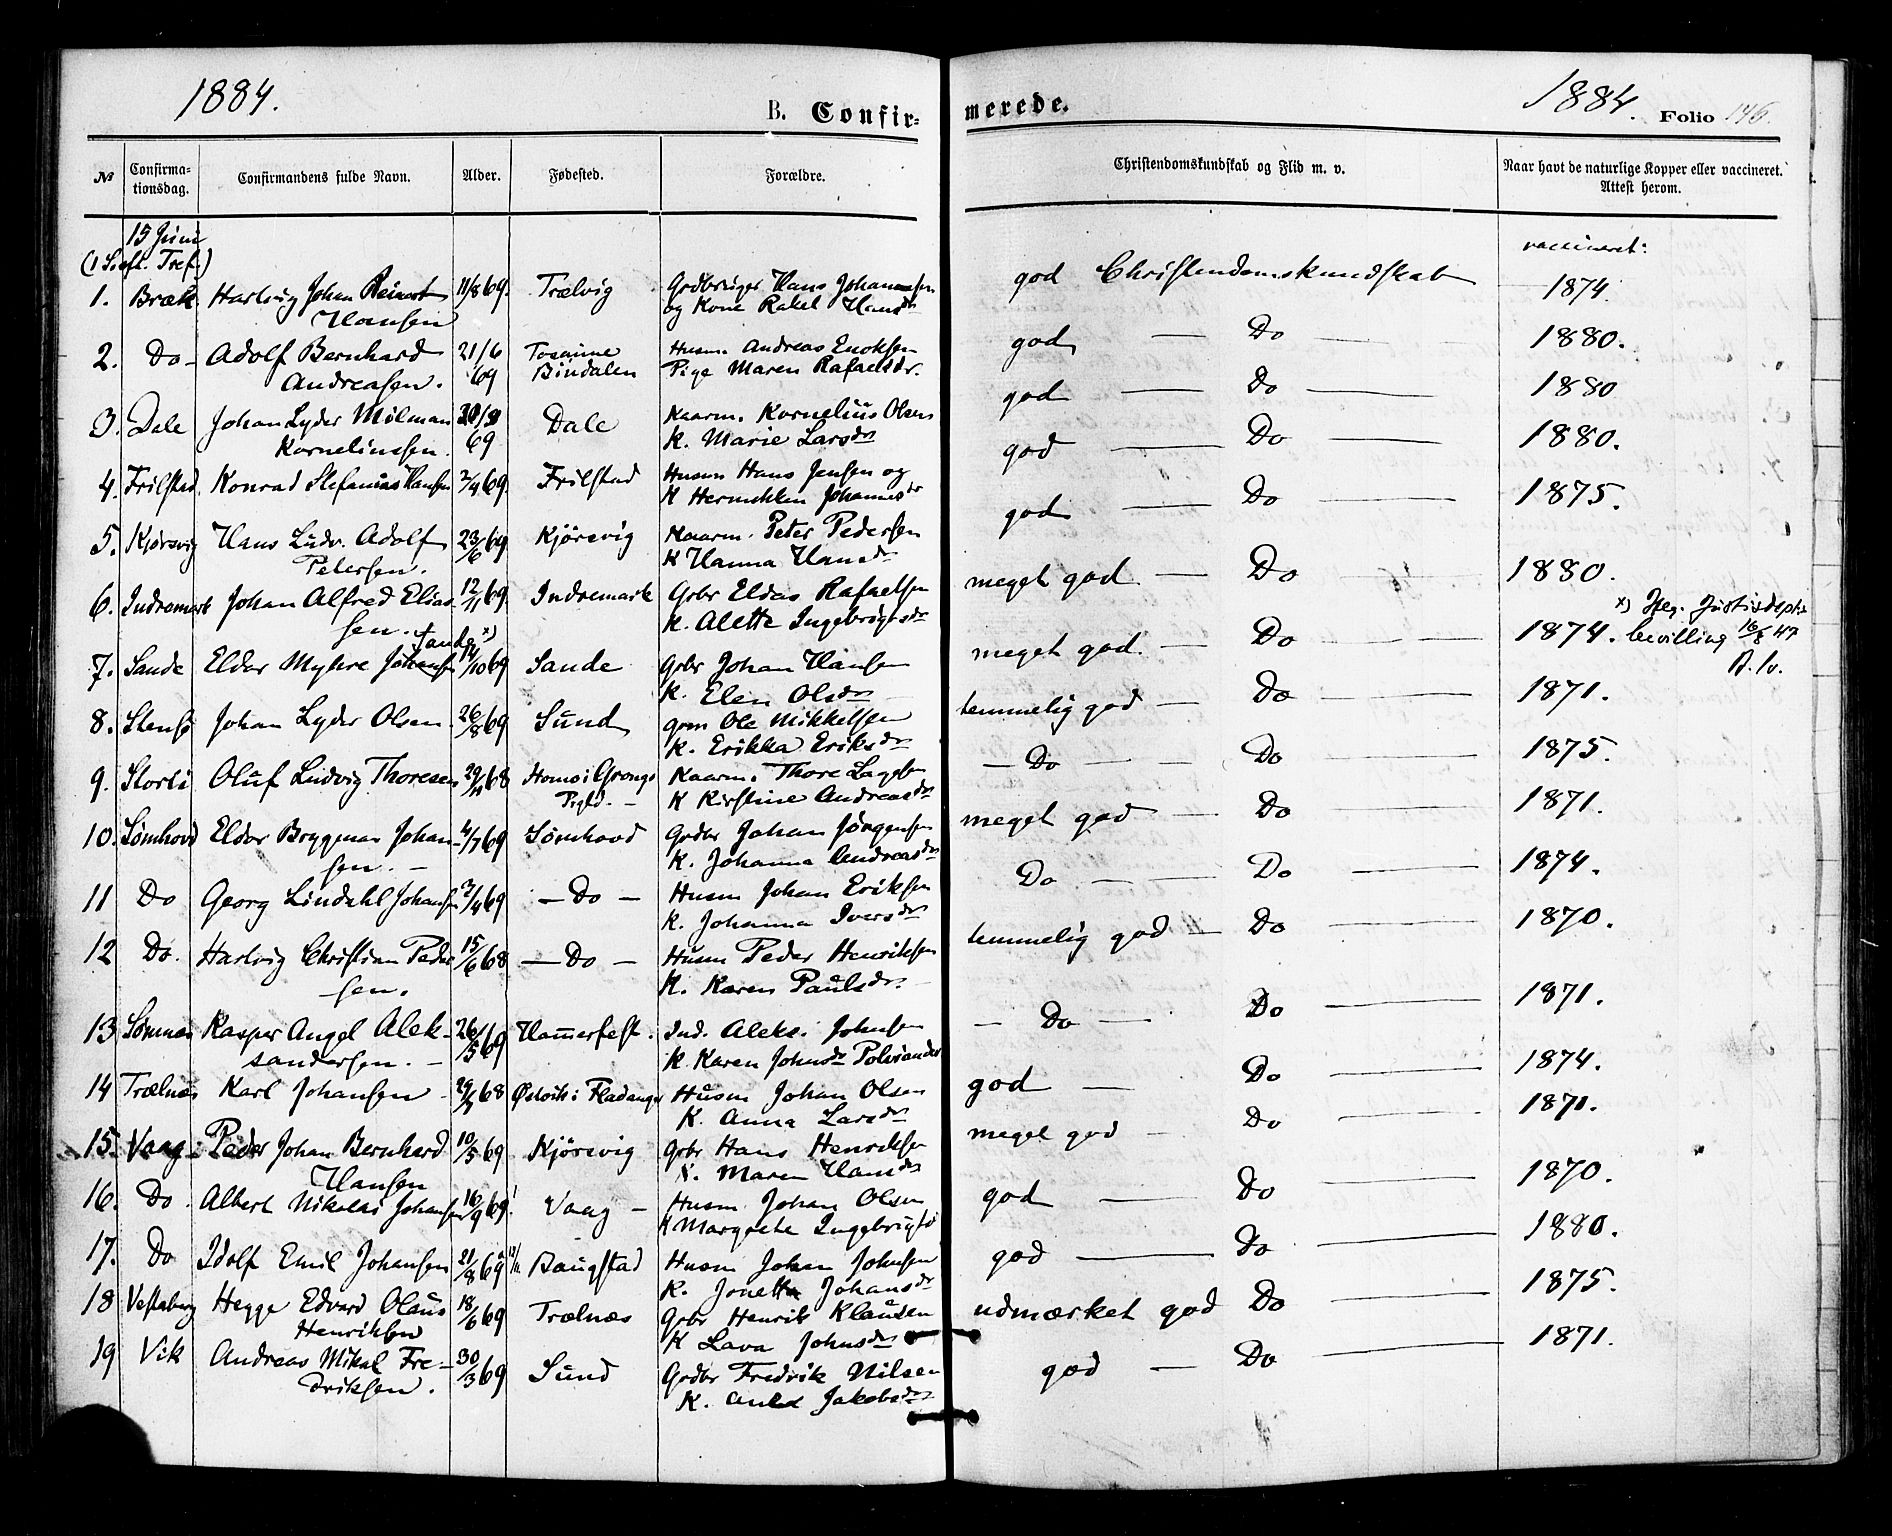 1884.
B. Confir-
merede.
1884.
Folio 146.
№
Confirma-
tionsdag.
Confirmandens fulde Navn.
Alder.
Fødested.
Forældre.
Christendomskundskab og Flid m. v.
Naar havt de naturlige Kopper eller vaccineret.
Attest herom.
15 Juni
(1 S. eft. Tref.)
vaccineret:
1. Bræk Hartvig Johan Reinert 11/8 69. Trælvig Grdbruger Hans Johannessen god Christendomskundskab 1874.
Hansen og Kone Rakel Hansdr
2. Do - Adolf Bernhard 21/6 Tosaune Husm. Andreas Enoksen god — Do — 1880.
Andreasen. 69 Bindalen Pige Maren Rafaelsdr.
3. Dale Johan Lyder Milman Dale Kaarm. Kornelius Olsen god — Do — 1880
Korneliussen. 69 K. Marie Larsdr
4. Frilstad. Konrad Stefanias Hansen 2/4 69. Frilstad Husm Hans Jensen og god — Do — 1880.
K Johannesdr
5. Kjørsvig Hans Ludv. Adolf 23/6 69 Kjørsvig Kaarm. Peter Pedersen god — Do — 1875.
Petersen. K Hanna Hansdr
6. Indremark Johan Alfred Elias- 12/11 69. Indremark Grbr Eldas Rafaelsen meget god — Do — 1880.
sen. K. Alette Ingebrigtsdr
x) Jfg. Justisdepts
bevilling 16/8 47
7. Sande Eldar Myhre Johansen Sande x) 14/10 69 Sande Grbr Johan Hansen meget god. — Do — 1874.
K. Elen Olsdr
8. Stensø Johan Lyder Olsen. 26/8 69 Sund grm Ole Mikkelsen temmelig god — Do — 1871.
K. Erikka Eriksdr
9. Storli Oluf Ludvig Thoresen 29/11 68 Homo i Grongs Kaarm. Thore — Do — Do — 1875.
Pgld. - K Kirstine Andreasdr
10. Sømhovd Eldor Brygman Johan- 4/7 69 Sømhovd Grdbr Johan Jørgensen meget god — Do — 1871.
sen. - K. Johanna Andreasdr
11 Do Georg Lindahl Johansen 3/4 69 — Do — Husm Johan Eriksen Do — Do — 1874.
K. Johanna Iversdr
12 Do. Hartvig Christian Peder 15/6 68 — Do — Husm Peder Henriksen temmelig god — Do — 1870.
sen. K. Karen Paulsdr.
13 Sømnæs Kasper Angel Alek- 26/5 69 Hammerfest. Ind. Aleks. Johnsen — Do — Do — 1871.
sandersen. - K. Karen Johnsdr
14 Trælnæs Karl Johansen 68 i Fladanger Husm Johan Olsen god — Do — 1874.
K. Anna Larsdr
15. Vaag Peder Johan Bernhard 10/5 69 Kjørsvig Grbr Hans Henriksen meget god — Do — 1871.
Hansen K. Maren Hansdr
16. Do. Albert Nikolai Johansen 16/9 69 Vaag — Husm Johan Olsen god — Do — 1870.
K Margrete Ingebrigtsd
17. Do Idolf Emil Johansen 21/8 69 Baugstad Husm Johan Johnsen god — Do — 1880.
K. Jonetta Johansdr
18 Vestaberg Hegge Edvard Olaus 18/6 69 Trælnæs Grbr Henrik Klausen udmærket god Do — 1875.
Henriksen K Lava Johnsdr
19 Vik Andreas Mikal Fre- 30/3 69 Sund Grdbr Fredrik Nilsen god — Do — 1871.
driksen. K. Jakobsdr